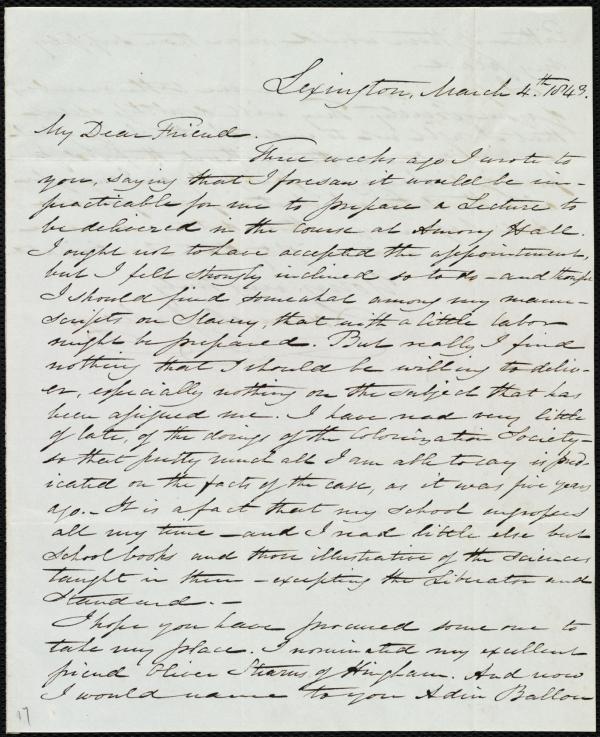 Lexington, March 4.th 1843.
My Dear Friend.
Three weeks ago I wrote to
you, saying that I foresaw it would be im-
practicable for me to prepare a Lecture to
be delivered in the course at Amory Hall.
I ought not to have accepted the appointment,
but I felt strongly inclined so to do – and thought
I should find somewhat among my manu-
scripts on Slavery, that with a little labor
might be prepared. But really I find
nothing that I should be willing to deliv-
er, especially nothing on the subject that has
been assigned me. I have read very little
of late, of the doings of the Colonization Society –
so that pretty much all I am able to say is pred-
icated on the facts of the case, as it was five years
ago. – It is a fact that my school engrosses
all my time – and I read little else but
School books and those illustrative of the sciences
taught in them – excepting the Liberator and
Standard. –
I hope you have procured some one to
take my place. I nominated my excellent
friend Oliver Stearns of Hingham. And now
I would name to you Adin Ballou